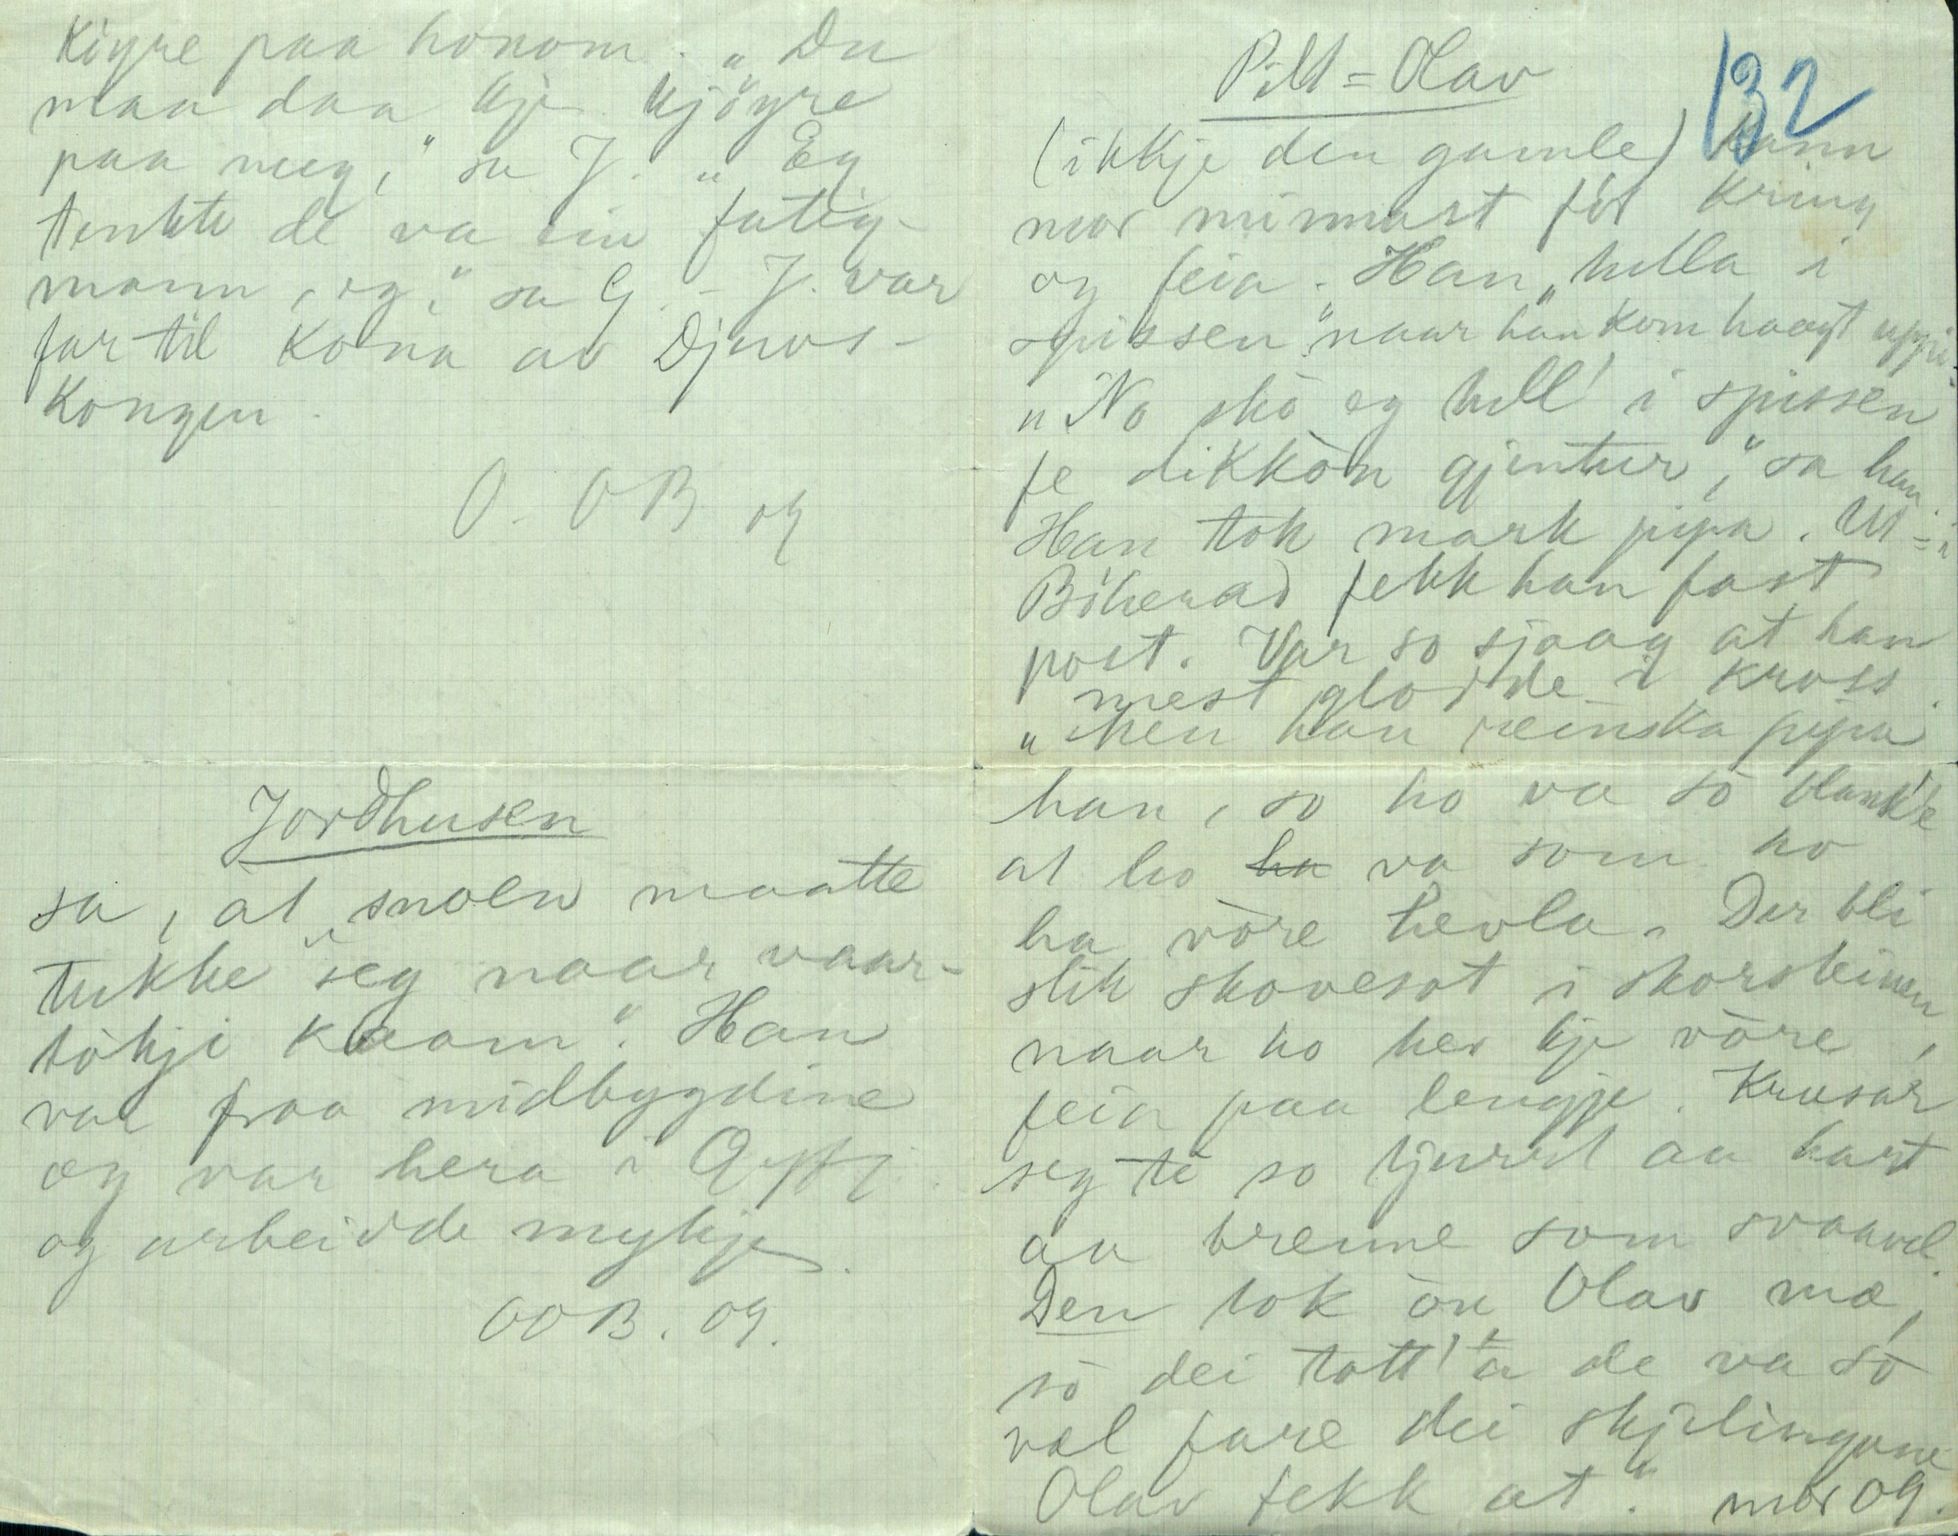 Köyre paa honom. „Du
maa daa kje kjöyre
paa meg," sa J. „Eg
tenkte de va ein fatig-
mann, eg," sa G. – J. var
far til Kona av Djuvs-
Kongen.
O. O B 09
Jordhusen
sa, at „snoen maatte
tukke seg naar vaar-
tökji kaam". Han
var fraa midbygdine
og var hera i
og arbeidde mykje.
OOB. 09.
132
Pilt=Olav
(ikkje den gamle) kann
mor minnast för kring
og feia. Han „hella i
spissen" naar han kom høgt uppi.
„No skò eg hell' i spissen
fe dikkòn gjentur," sa han.
Han tok mark pipa. Ut=i
Böherad fekk han fast
post. Var so sjaag at han
mest glodde i kross.
„Men han reinska pipa
han, so ho va sò blank'e
at ho ha va som ho
ha vòre hevla. Der bli
slik skovesot i skorsteinen,
naar ho hev kje vòre
feia paa lengje. Krusar
seg te so tjurrt aa hart
aa brenne som svaavel.
Den tok òn Olav mæ,
sò dei tott' at de va sò
væl fare dei skjelingane
Olav fekk at". mor 09.